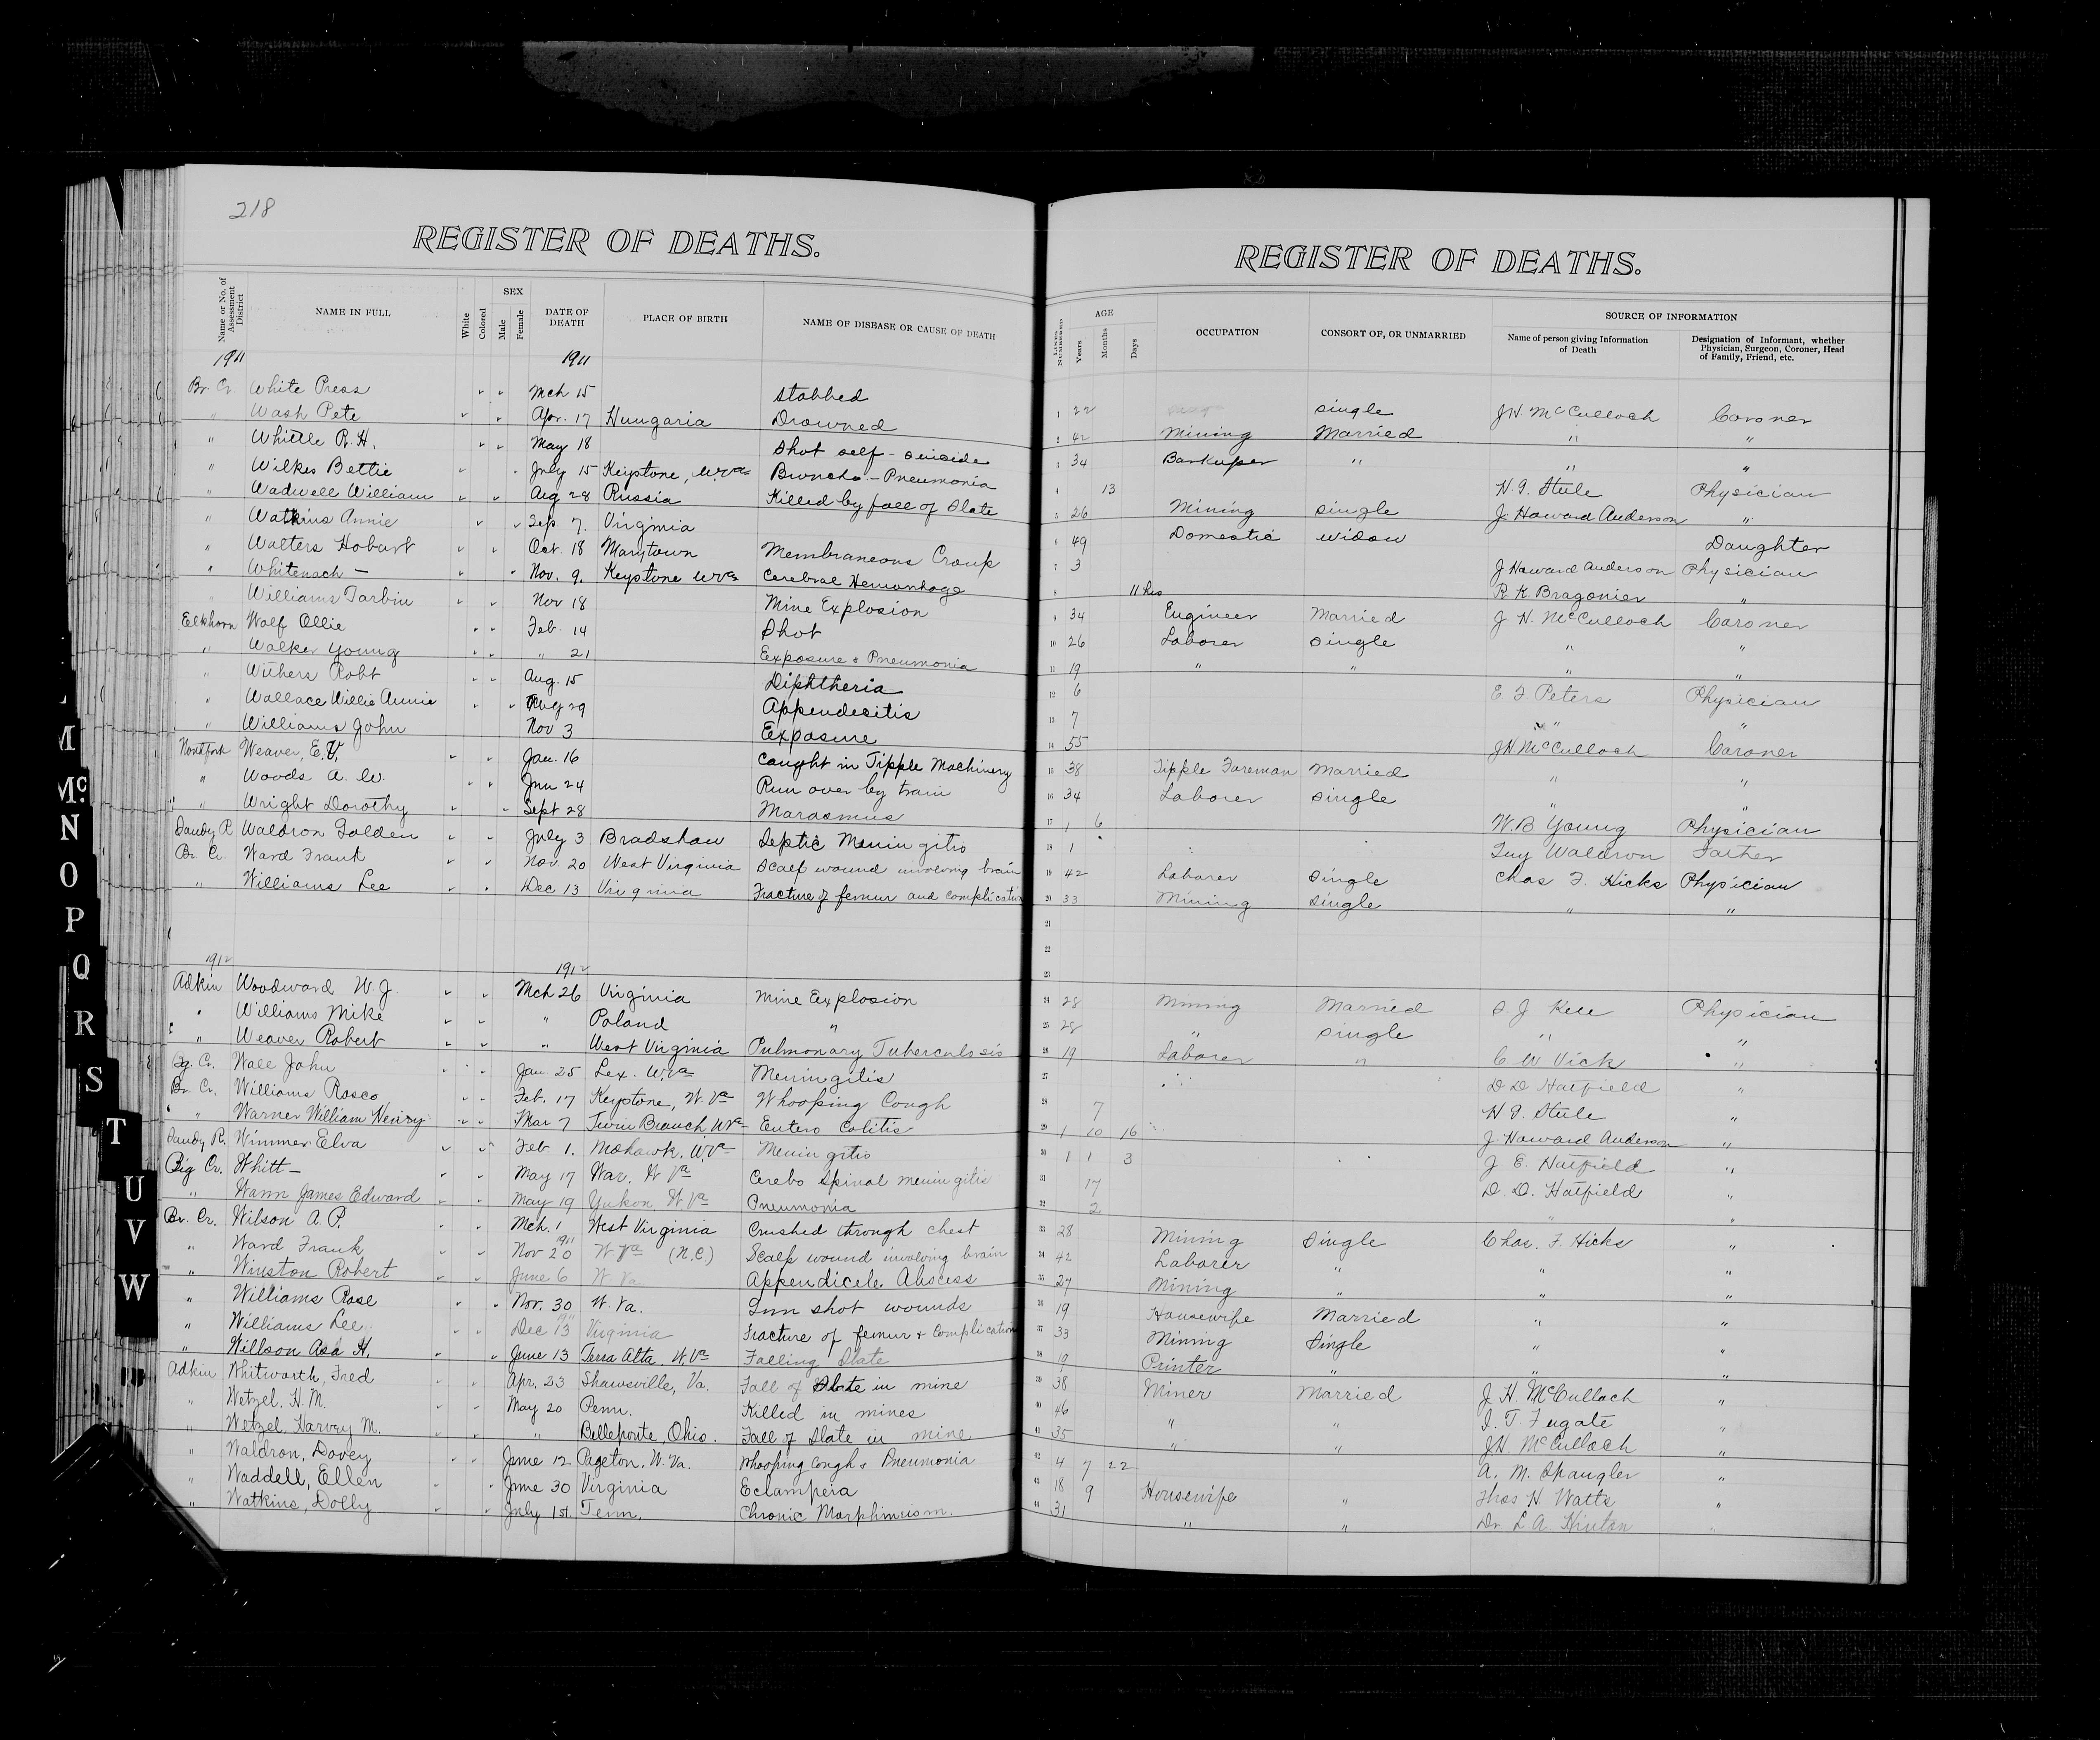 218
REGISTER OF DEATHS.
Name or No. of Assessment District
NAME IN FULL
White
Colored
SEX
Male
Female
DATE OF DEATH
PLACE OF BIRTH
NAME OF DISEASE OR CAUSE OF DEATH
1911 1911
Br. Cr. White Press " " Mch 15 Stabbed
" Wash Pete " " Apr. 17 Hungaria Drowned
" Whittle R. H. " " May 18 Shot self - suicide
" Wilkes Bettie " " July 15 Keystone, W.Va Broncho-Pneumonia
" Wadwell William " " Aug 28 Russia Killed by fall of Slate
" Watkins Annie " " Sep 7. Virginia
" Walters Hobart " " Oct. 18 Marytown Membraneous Croup
" Whitenach — " " Nov. 9. Keystone W.Va Cerebral Hemorrhage
" Williams Tarbin " " Nov 18 Mine Explosion
Elkhorn Wolf Ollie " " Feb. 14 Shot
" Walker Young " " " 21 Exposure & Pneumonia
" Withers Robt " " Aug. 15 Diphtheria
" Wallace Willie Annie " " Aug 29 Appendecitis
" Williams John Nov 3 Exposure
Northfork Weaver, E.V. " " Jan. 16 Caught in Tipple Machinery
" Woods A. W. " " Jun 24 Run over by train
" Wright Dorothy " " Sept 28 Marasmus
Sandy R Waldron Golden " " July 3 Bradshaw Septic Menin gitis
Br. Cr. Ward Frank " " Nov. 20 West Virginia Scalp wound involving brain
" Williams Lee " " Dec 13 Virginia Fracture of femur and complication
1912 1912
Adkin Woodward W. J. " " Mch 26 Virginia Mine Explosion
" Williams Mike " " " Poland "
" Weaver Robert " " " West Virginia Pulmonary Tuberculosis
Bg. Cr. Wall John " " Jan 25 Lex. W.Va Meningitis
Br. Cr. Williams Rosco " " Feb. 17 Keystone, W. Va Whooping Cough
" Warner William Henry " " Mar 7 Twin Branch W.Va Entero Colitis
Sandy R. Wimmer Elva " " Feb 1. Mohawk, W.Va Menin gitis
Big Cr. Whitt — " " May 17 War, W Va Cerebo Spinal menin gitis
" Wann James Edward " " May 19 Yukon, W Va Pneumonia
Br. Cr. Wilson A. P. " " Mch. 1 West Virginia Crushed through chest
" Ward Frank " " Nov 20 1911 W Va (N.C.) Scalp wound involving brain
" Winston Robert " " June 6 W Va Appendicele Abscess
" Williams Rose " " Nov. 30 W. Va. Gun shot wounds
" Williams Lee " " Dec 13 1911 Virginia Fracture of femur & complication
" Willson Asa H. " " June 13 Terra Alta, W.Va Falling Slate
Adkin Whitworth, Fred " " Apr. 23 Shawsville, Va. Fall of Slate in mine
" Wetzel, H. M. " " May 20 Penn. Killed in mines
" Wetzel, Harvey M. " " " Bellepoute, Ohio. Fall of Slate in mine
" Waldron, Dovey " " June 12 Pageton, W. Va. Whooping Cough & Pneumonia
" Waddell, Ellen " " June 30 Virginia Eclampsia
" Watkins, Dolly " " July 1st. Tenn. Chronic Morphinism.
REGISTER OF DEATHS.
LINES NUMBERED
AGE
Years
Months
Days
OCCUPATION
CONSORT OF, OR UNMARRIED
SOURCE OF INFORMATION
Name of person giving Information of Death
Designation of Informant, whether Physician, Surgeon, Coroner, Head of Family, Friend, etc.
1 22 single J H McCulloch Coroner
2 42 Mining Married " "
3 34 Barkeeper " " "
4 13 H. G. Steele Physician
5 26 Mining single J. Howard Anderson "
6 49 Domestic widow Daughter
7 3 J Howard Anderson Physician
8 11 hrs R. K. Bragonier "
9 34 Engineer Married J. H. McCulloch Coroner
10 26 Laborer Single " "
11 19 " " " "
12 6 E. F Peters Physician
13 7 " "
14 55 J.H. McCulloch Coroner
15 38 Tipple Foreman Married " "
16 34 Laborer Single " "
17 1 6 W. B Young Physician
18 1 Guy Waldron Father
19 42 Laborer Single Chas F. Hicks Physician
20 33 Mining Single " "
21
22
23
24 28 Mining Married S. J Kell Physician
25 28 " Single " "
26 19 Laborer " C W Vick "
27 D D Hatfield "
28 7 H G. Steele "
29 1 10 16 J. Howard Anderson "
30 1 1 3 J E. Hatfield "
31 17 D. D. Hatfield "
32 2 " "
33 28 Mining Single Chas. F. Hicks "
34 42 Laborer " " "
35 27 Mining " " "
36 19 Housewife Married " "
37 33 Mining Single " "
38 19 Printer " " "
39 38 Miner Married J H. McCulloch "
40 46 " " I. T. Fugate "
41 35 " " J H McCulloch "
42 4 7 22 A. M. Spangler "
43 18 9 Housewife " Thos H. Watts "
44 31 " " Dr. L A. Hinton "
M
Mc
N
O
P
Q
R
S
T
U
V
W